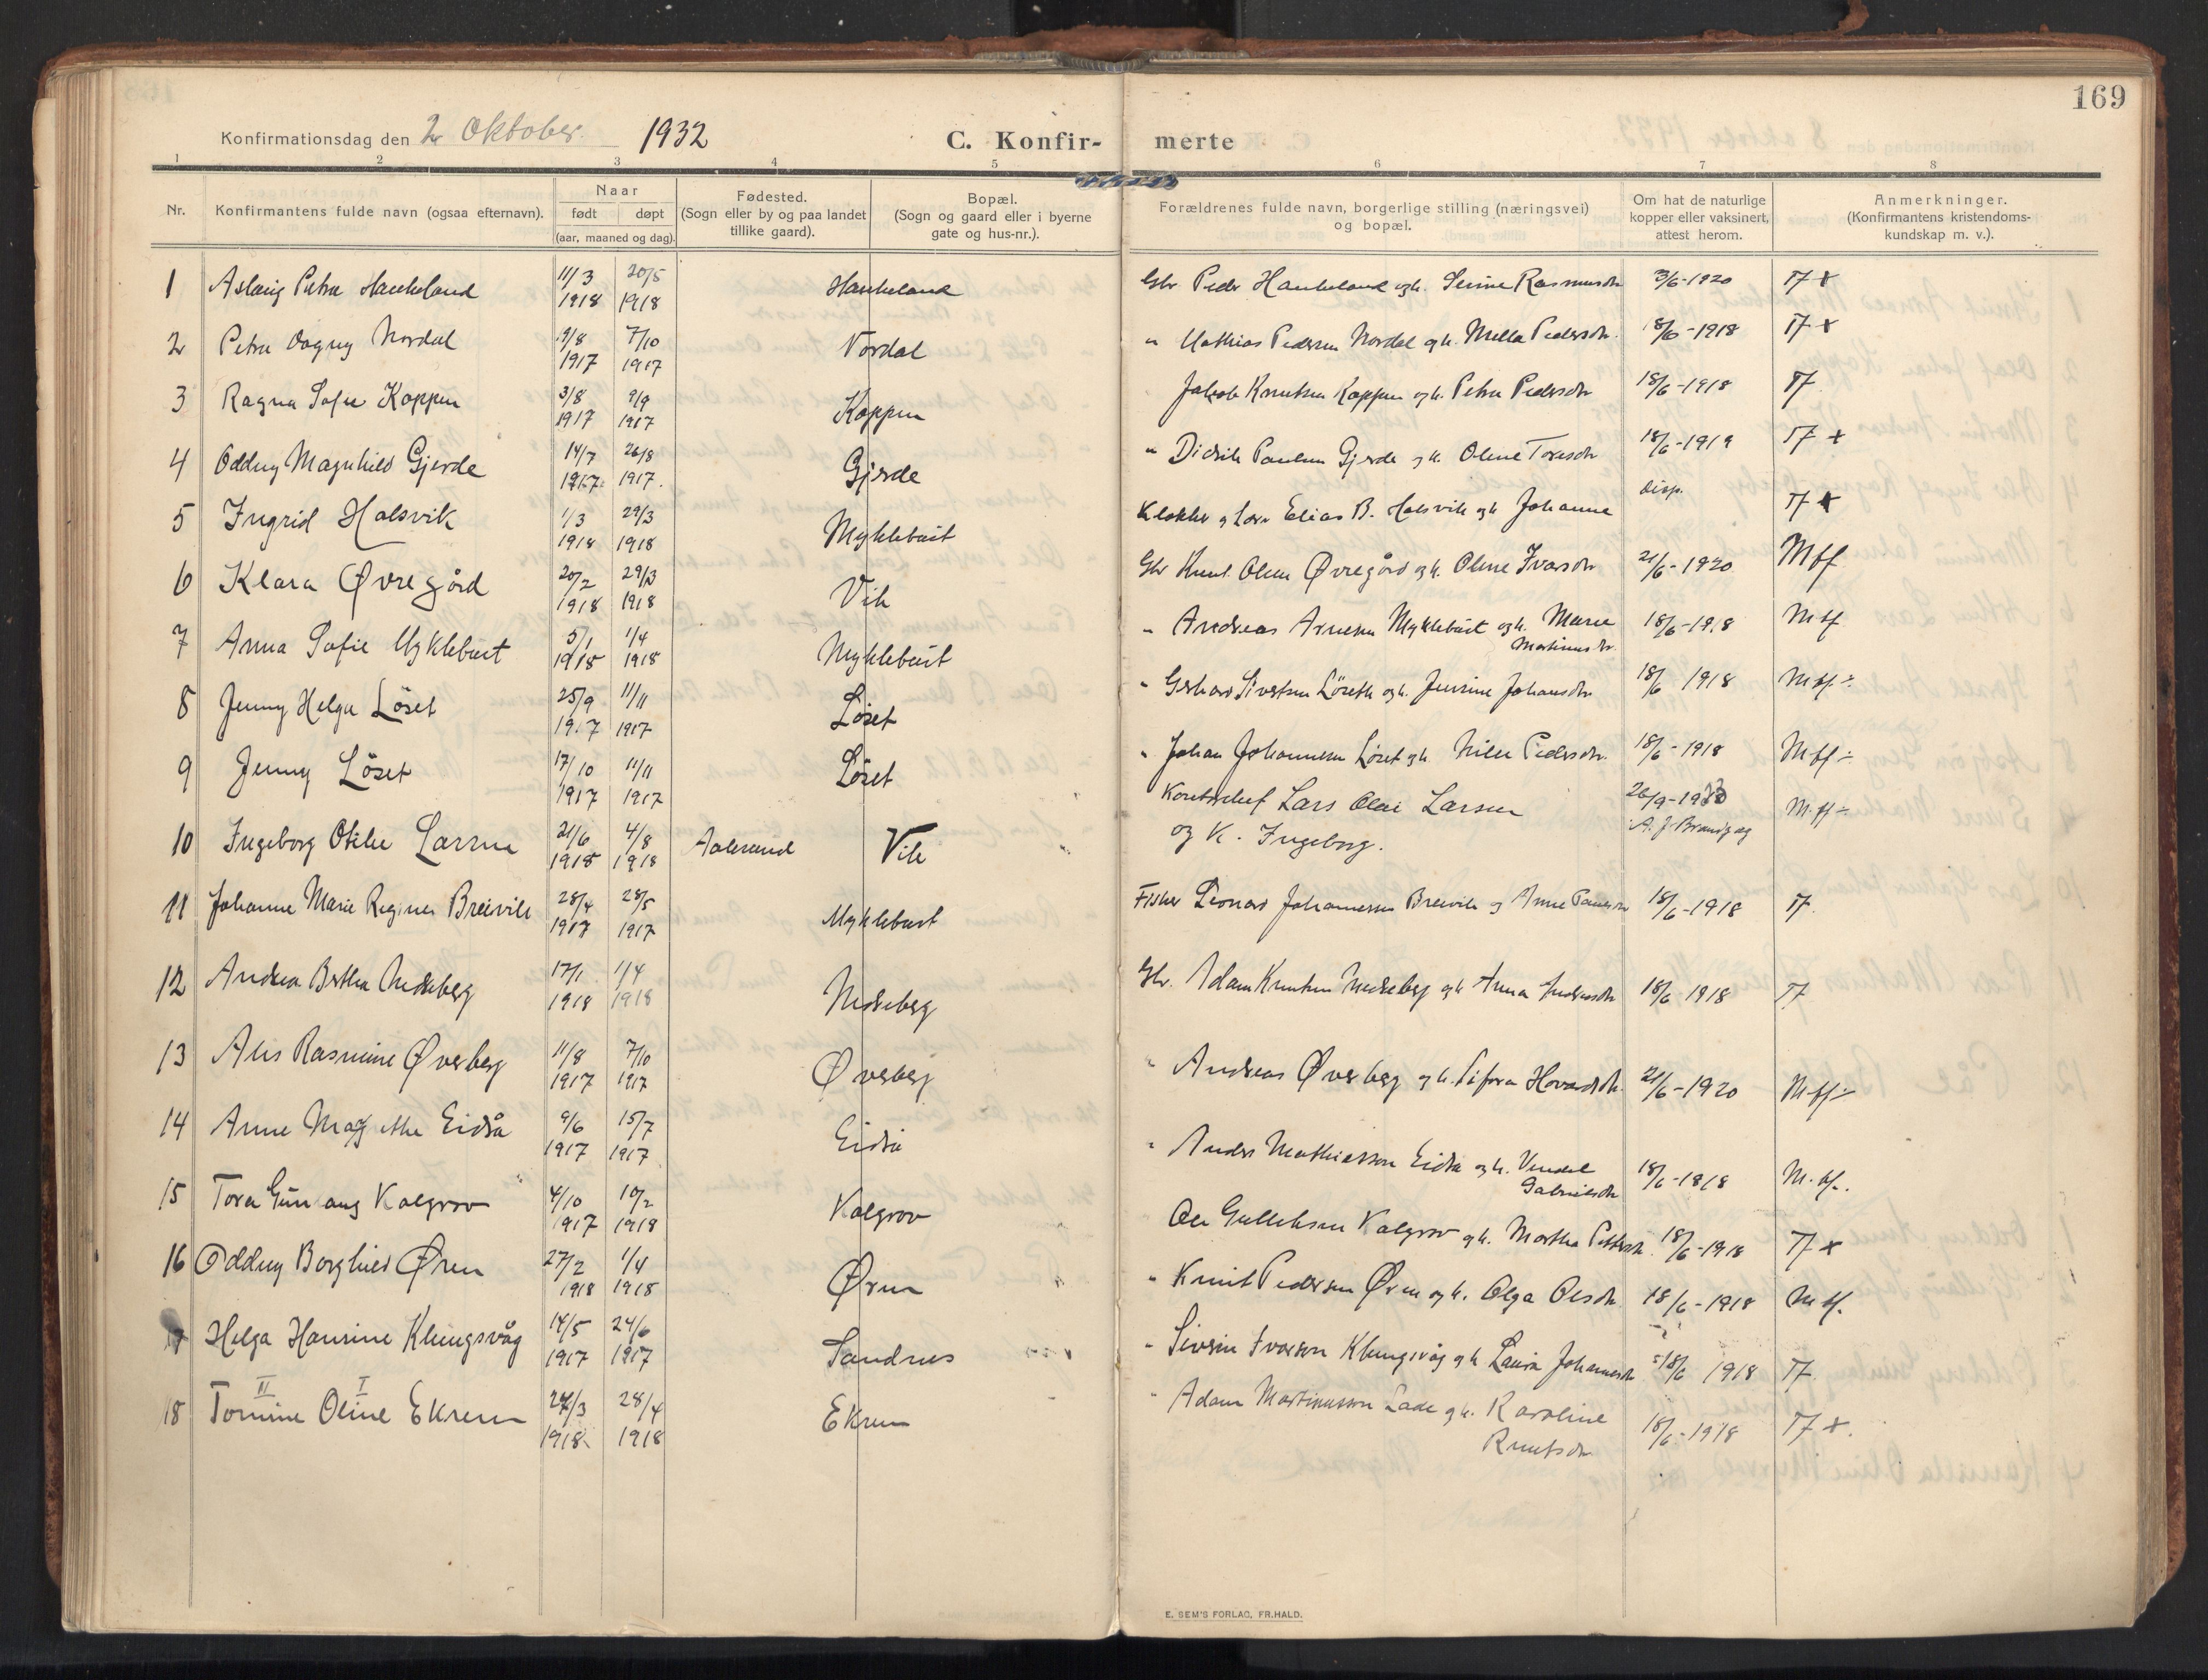 169
Konfirmationsdag den 2 Oktober. 1932 C. Konfir- merte
1 2 3 4 5 6 7 8
Nr. Konfirmantens fulde navn (ogsaa efternavn). Naar født døpt (aar, maaned og dag). Fødested. (Sogn eller by og paa landet tillike gaard). Bopæl. (Sogn og gaard eller i byerne gate og hus-nr.). Forældrenes fulde navn, borgerlige stilling (næringsvei) og bopæl. Om hat de naturlige kopper eller vaksinert, attest herom. Anmerkninger. (Konfirmantens kristendoms- kundskap m. v.).
1 Aslaug Petra Haukeland 11/3 1918 20/5 1918 Haukeland Gbr Peder Haukeland og h. Rasmusdr 3/6-1920 Tf +
2 Petra Dagny Nordal 9/8 1917 7/10 1917 Nordal " Mathias Pedersen Nordal og h. Mella Pedersdr. 18/6-1918 Tf +
3 Ragna Sofie Koppen 3/8 1917 9/9 1917 Koppen Jakob Knutsen Koppen og h. Petra Pedersdr 18/6-1918 Tf
4 Oddny Magnhild Gjerde 14/7 1917. 26/8 1917. Gjerde " Didrik Paulsen Gjerde og h. Oline Toresdr 18/6-1919 Tf +
5 Ingrid Halsvik 1/3 1918 29/3 1918 Myklebust Klokker og Elias B. Halsvik og h Johanne disp. Tf +
6 Klara Øvregård 20/2 1918 29/3 1918 Vik Gbr Knut Olsen Øvregård og h. Oline Ivarsdr 21/6-1920 Mtf
7 Anna Sofie Myklebust 5/1 1918 1/4 1918 Myklebust " Andreas Arnesen Myklebust og h. Marie Martinusdr. 18/6-1918 Mtf
8 Jenny Helga Löset 25/9 1917 11/11 1917 Löset " Gerhard Sivertsen Löseth og h. Jensine Johansdr 18/6 1918 Mtf ÷
9 Jenny Löset 17/10 1917 11/11 1917 Löset " Johan Johannesen Löset og h. Pedersdr. 18/6-1918 Mtf ÷
10 Ingeborg Otilie Larsen 21/6 1918 4/8 1918 Aalesund Vik Lars Olai Larsen
og K. Ingeborg. 26/9-1933 Mtf ÷
11 Johanne Marie Regine Breivik 28/4 1917 28/5 1917 Myklebust Fisker Leonard Johannesen Breivik og Anne 18/6-1918 Tf.
12 Andrea Berthea Nedreberg 17/1 1918 1/4 1918 Nedreberg Gbr. Adam Knutsen Nedreberg og h Anna Andreasdr 18/6 1918 Tf
13 Alis Rasmine Øverberg 11/8 1917 7/10 1917 Øverberg " Andreas Øverberg og h. Hovardsdr. 21/6-1920 Mtf ÷
14 Anne Magrethe Eidså 9/6 1917 15/7 1917 Eidså " Anders Mathiassen Eidså og h. Vendel Gabrielsdr 18/6-1818 M.tf.
15 Tora Kalgrov 4/10 1917 10/2 1918 Kalgrov Ole Gulleksen Kalgrov og h. Martha 18/6-1918 Tf +
16 Oddny Borghild Øren 27/2 1918 1/4 1918 Øren " Knut Pedersen Øren og h. Olga Olesdr. 18/6-1918 Mtf.
17 Helga Hansine Klungsvåg 14/5 1917 24/6 1917 Sandnes " Ivarsen Klungsvåg og h Johannesdr 18/6 1918 Tf
II I
18 Tomine Oline Ekrem 27/3 1918 28/4 1918 Ekrem " Adam Martinussen Lade og h. Karoline Knutsdr. 18/6-1918 Tf +.
E. SEM'S FORLAG, FR.HALD.